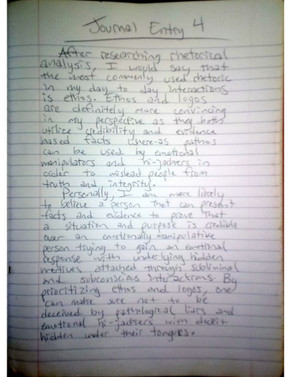 Journal Entry 4
After researching rhetorical
analysis, I would say that
the most commonly used rhetoric
in my day to day interactions
is ethos. Ethos and logos
are definitely more convincing
in my perspective as they both
utilize credibility and evidence
based facts whereas pathos
can be used by emotional
manipulators and hi-jackers in
order to mislead people from
truth and integrity.
Personally, I am more likely
to believe a person that can present
facts and evidence to prove that
a situation and purpose is credible
over an emotionally manipulative
person trying to gain an emotional
response with underlying hidden
motives attached through subliminal
and subconscious interactions. By
prioritizing ethos and logos, one
can make sure not to be
deceived by pathological liars and
emotional hi-jackers with deceit
hidden under their tongues.